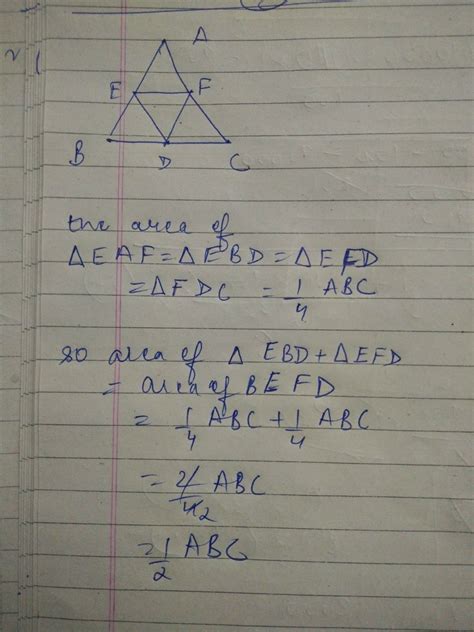 A
E F
B D C
the area of
△EAF = △EBD = △EFD
= △FDC = 1/4 ABC
so area of △ EBD + △EFD
= area of BEFD
= 1/4 ABC + 1/4 ABC
= 2/4 2 ABC
= 1/2 ABC